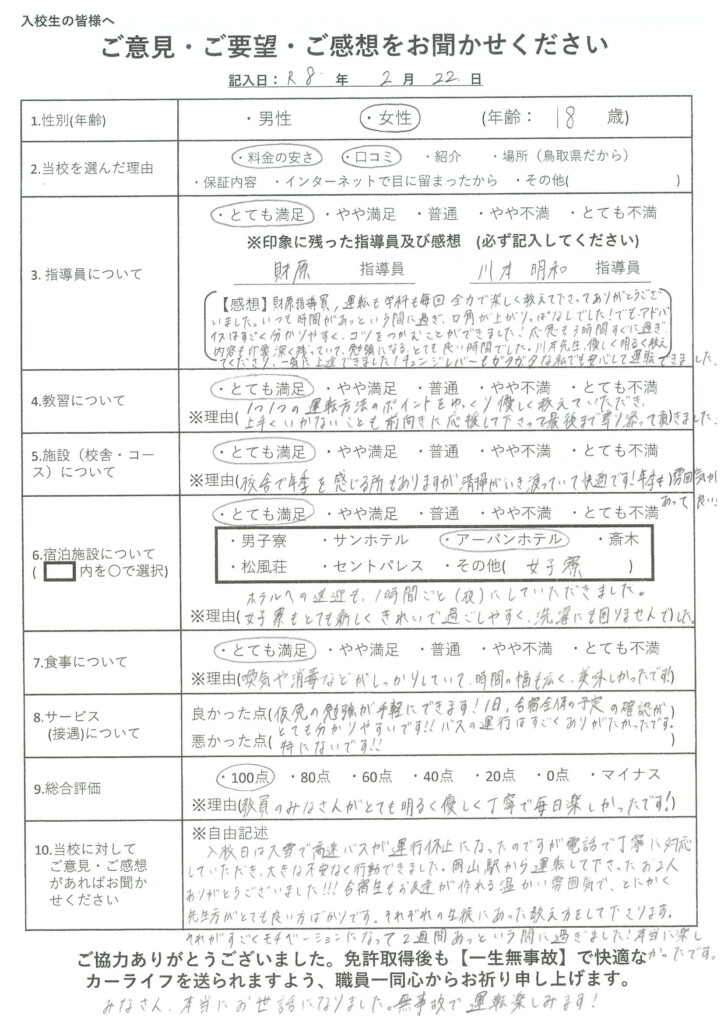 入校生の皆様へ
ご意見・ご要望・ご感想をお聞かせください
記入日：R8 年 2 月 22 日
1.性別(年齢)
・男性 ・女性 (年齢： 18 歳)
2.当校を選んだ理由
・料金の安さ ・口コミ ・紹介 ・場所（鳥取県だから）
・保証内容 ・インターネットで目に留まったから ・その他( )
3. 指導員について
・とても満足 ・やや満足 ・普通 ・やや不満 ・とても不満
※印象に残った指導員及び感想 (必ず記入してください)
財原 指導員 川本 明和 指導員
【感想】財原指導員,運転も学科も毎回全力で楽しく教えて下さってありがとうござ
いました。いつも時間があっという間に過ぎ、口角が上がりっぱなしでした!でもアドバ
イスはすごく分かりやすく、コツをつかむことができました!応急も3時間すぐに過ぎ
内容も印象深く残っていて、勉強になる、とても良い時間でした。川本先生、優しく明るく教え
てくださり、一気に上達できました!チェンジレバーもガタガタな私でも安心して運転できました。
4.教習について
・とても満足 ・やや満足 ・普通 ・やや不満 ・とても不満
※理由(1つ1つの運転方法のポイントをゆっくり優しく教えていただき、
上手くいかないことも前向きに応援して下さって最後まで寄り添って頂きました。
5.施設（校舎・コース）について
・とても満足 ・やや満足 ・普通 ・やや不満 ・とても不満
※理由(校舎で年季を感じる所もありますが清掃がいき渡っていて快適です!年季も)雰囲気が
あって良い!
6.宿泊施設について
( 内を〇で選択)
・とても満足 ・やや満足 ・普通 ・やや不満 ・とても不満
・男子寮 ・サンホテル ・アーバンホテル ・斎木
・松風荘 ・セントパレス ・その他( 女子寮 )
ホテルへの送迎も、1時間ごと(夜)にしていただきました。
※理由(女子寮もとても新しくきれいで過ごしやすく、洗濯にも困りませんで)した
7.食事について
・とても満足 ・やや満足 ・普通 ・やや不満 ・とても不満
※理由(喚気や消毒などがしっかりしていて、時間の幅も広く、美味しかったです!)
8.サービス
(接遇)について
良かった点(仮免の勉強が手軽にできます!1日,合宿全体の予定の確認が
とても分かりやすいです!!バスの運行はすごくありがたかったです。
悪かった点( 特にないです!! )
9.総合評価
・100点 ・80点 ・60点 ・40点 ・20点 ・0点 ・マイナス
※理由(教員のみなさんがとても明るく優しく丁寧で毎日楽しかったです!)
10.当校に対して
ご意見・ご感想
があればお聞か
せください
※自由記述
入校日は大雪で高速バスが運行休止になったのですが電話で丁寧に対応
していただき、大きな不安なく行動できました。岡山駅から運転して下さったお2人
ありがとうございました!!!合宿生もお友達が作れる温かい雰囲気で、とにかく
先生方がとても良い方ばかりです。それぞれの生徒にあった教え方をして下さります。
それがすごくモチベーションになって2週間あっという間に過ぎました!本当に楽し
かったです。
ご協力ありがとうございました。免許取得後も【一生無事故】で快適な
カーライフを送られますよう、職員一同心からお祈り申し上げます。
みなさん、本当にお世話になりました。無事故で運転楽しみます!